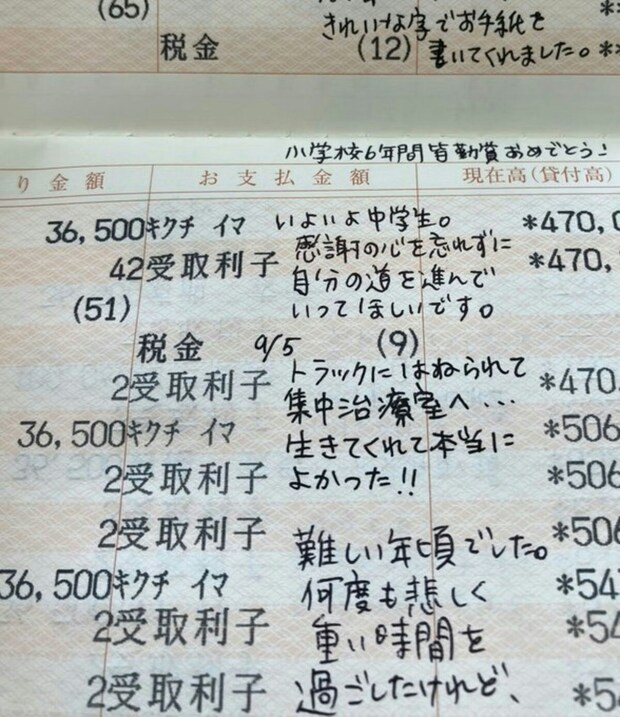 (65)
きれいな字でお手紙を
税金 (12) 書いてくれました。 **
小学校6年間皆勤賞おめでとう!
り金額 お支払金額 現在高(貸付高)
36,500キクチ イマ いよいよ中学生。 *470,0
感謝の心を忘れずに
42受取利子 自分の道を進んで *470,
(51) いってほしいです。
税金 9/5 (9)
2受取利子 トラックにはねられて *470
36,500キクチ イマ 集中治療室へ… *506
生きてくれて本当に
2受取利子 よかった!! *506
2受取利子 難しい年頃でした。 *506
36,500キクチ イマ 何度も悲しく *547
2受取利子 重い時間を *54
2受取利子 過ごしたけれど、 *54